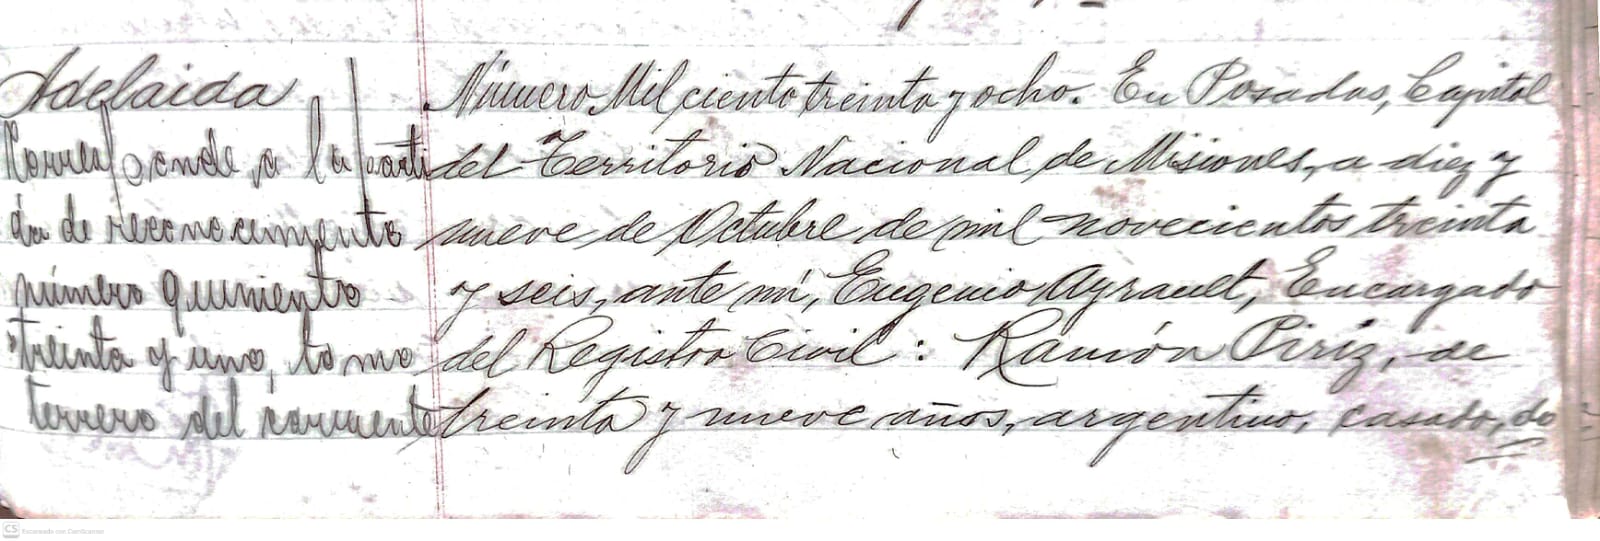 Adelaida
Corresponde a la parti
da de reconocimiento
número quiniento
treinta y uno, tomo
terrero del corriente
Número Mil ciento treinta y ocho. En Posadas, Capital
del Territorio Nacional de Misiones, a diez y
nueve de Octubre de mil novecientos treinta
y seis, ante mí, Eugenio Ayrault, Encargado
del Registro Civil: Ramón Piriz, de
treinta y nueve años, argentino, casado, do
CS Escaneado con CamScanner